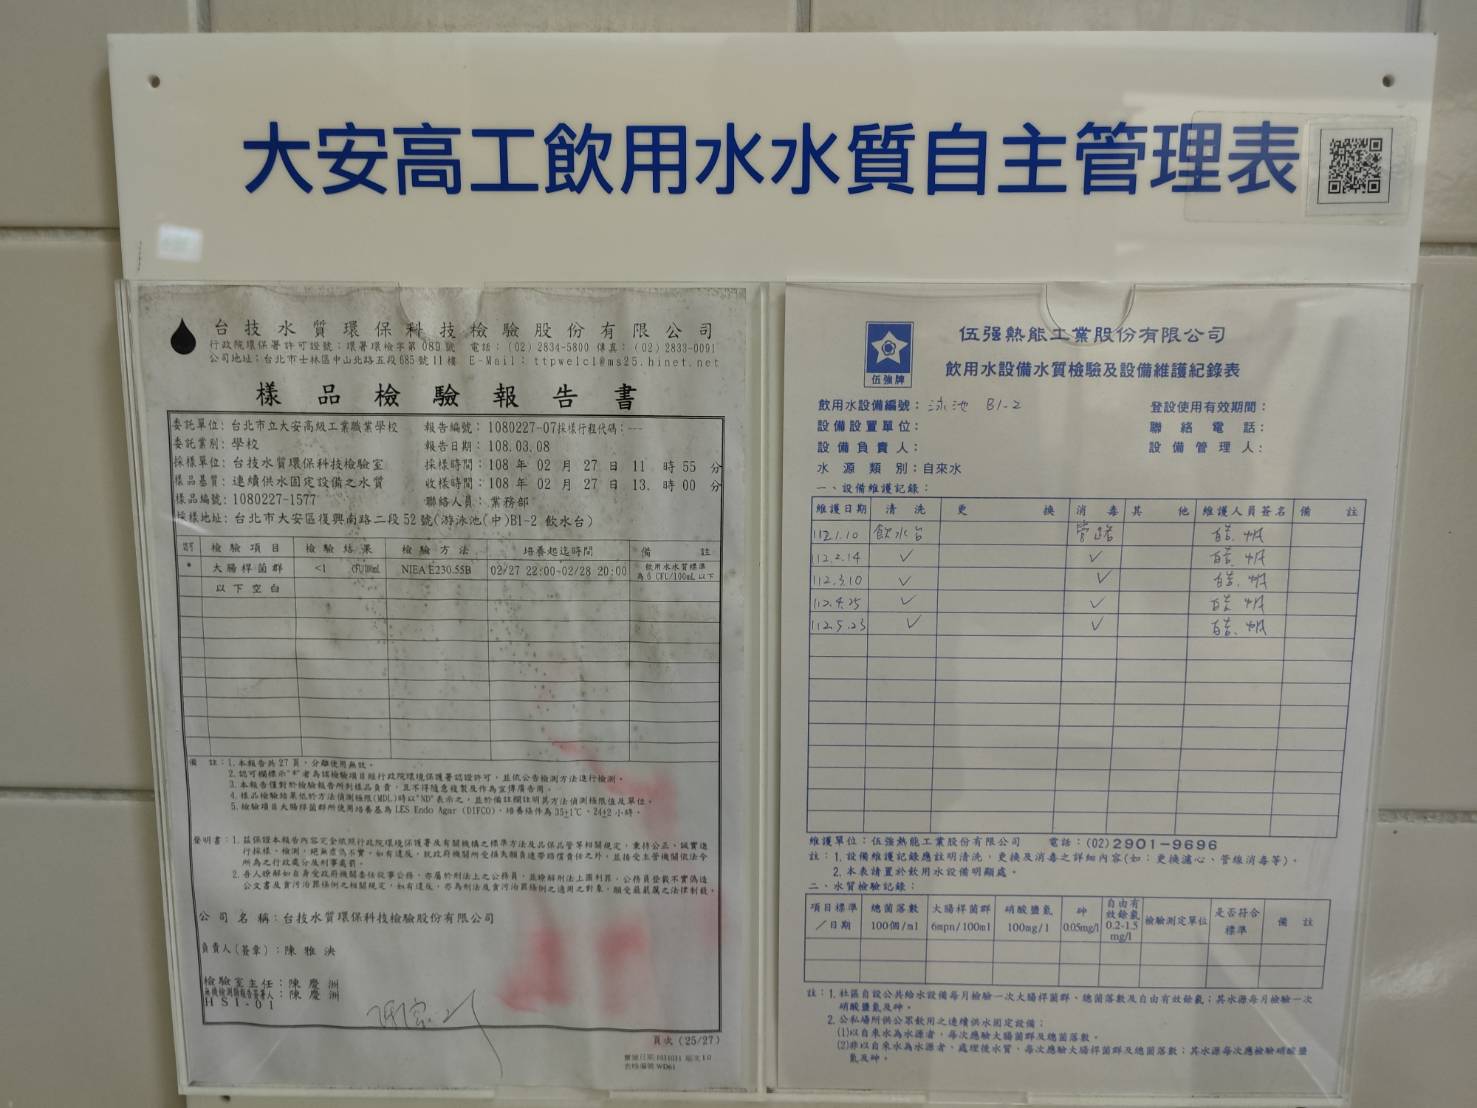 大安高工飲用水水質自主管理表
台技水質環保科技檢驗股份有限公司
行政院環保署許可證號：環署環檢字第 089 號 電話：(02) 2834-5800 傳真：(02) 2833-0091
公司地址：台北市士林區中山北路五段 685 號 11 樓 E-Mail：ttpwelcl@ms25.hinet.net
樣品檢驗報告書
委託單位：台北市立大安高級工業職業學校 報告編號：1080227-07採樣行程代碼：---
委託業別：學校 報告日期：108.03.08
採樣單位：台技水質環保科技檢驗室 採樣時間：108 年 02 月 27 日 11 時 55 分
樣品基質：連續供水固定設備之水質 收樣時間：108 年 02 月 27 日 13. 時 00 分
樣品編號：1080227-1577 聯絡人員：業務部
採樣地址：台北市大安區復興南路二段 52 號(游泳池(中)B1-2 飲水台)
檢驗項目 檢驗結果 檢驗方法 培養起迄時間 備 註
* 大腸桿菌群 <1 CFU/100mL NIEA E230.55B 02/27 22:00-02/28 20:00 飲用水水質標準
為 6 CFU/100mL 以下
以下空白
備 註：1.本報告共 27 頁，分離使用無效。
2.認可欄標示"*"者為該檢驗項目經行政院環境保護署認證許可，並依公告檢測方法進行檢測。
3.本報告僅對於檢驗報告所列樣品負責，且不得隨意複製及作為宣傳廣告用。
4.樣品檢驗結果低於方法偵測極限(MDL)時以"ND"表示之，並於備註欄註明其方法偵測極限值及單位。
5.檢驗項目大腸桿菌群所使用培養基為 LES Endo Agar (DIFCO)，培養條件為 35±1℃、24±2 小時。
聲明書：1.茲保證本報告內容完全依照行政院環境保護署及有關機構之標準方法及品保品管等相關規定，秉持公正、誠實進
行採樣、檢測，絕無虛偽不實，如有違反，就政府機關所受損失願負連帶賠償責任之外，並接受主管機關依法令
所為之行政處分及刑事處罰。
2.吾人瞭解如自身受政府機關委任從事公務，亦屬於刑法上之公務員，並瞭解刑法上圖利罪、公務員登載不實偽造
公文書及貪污治罪條例之相關規定，如有違反，亦為刑法及貪污治罪條例之適用之對象，願受最嚴厲之法律制裁。
公 司 名 稱：台技水質環保科技檢驗股份有限公司
負責人(簽章)：陳 雅 泱
檢驗室主任：陳 慶 洲
無機檢測類報告簽署人：陳 慶 洲
HSI-01
頁次 (25/27)
伍強牌
伍强熱能工業股份有限公司
飲用水設備水質檢驗及設備維護紀錄表
飲用水設備編號：泳池 B1-2 登設使用有效期間：
設備設置單位： 聯 絡 電 話：
設備負責人： 設備管理人：
水源類別：自來水
一、設備維護記錄：
維護日期 清 洗 更 換 消 毒 其 他 維護人員簽名 備 註
112.1.10 飲水台 管路
112.2.14 ✓ ✓
112.3.10 ✓ ✓
112.4.25 ✓ ✓
112.5.23 ✓ ✓
維護單位：伍強熱能工業股份有限公司 電話：(02)2901-9696
註：1.設備維護記錄應註明清洗，更換及消毒之詳細內容(如：更換濾心、管線消毒等)。
2.本表請置於飲用水設備明顯處。
二、水質檢驗記錄：
項目標準／日期 總菌落數 100個/ml 大腸桿菌群 6mpn/100ml 硝酸鹽氮 100mg/l 砷 0.05mg/l 自由有效餘氯 0.2-1.5 mg/l 檢驗測定單位 是否符合標準 備 註
註：1.社區自設公共給水設備每月檢驗一次大腸桿菌群、總菌落數及自由有效餘氯；其水源每月檢驗一次
硝酸鹽氮及砷。
2.公私場所供公眾飲用之連續供水固定設備；
(1)以自來水為水源者，每次應驗大腸菌群及總菌落數。
(2)非以自來水為水源者，處理後水質，每次應驗大腸桿菌群及總菌落數；其水源每次應檢驗硝酸鹽
氮及砷。